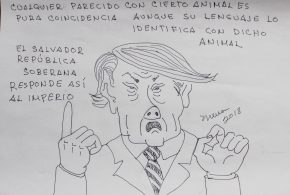 CUALQUIER PARECIDO CON CIERTO ANIMAL ES
PURA COINCIDENCIA AUNQUE SU LENGUAJE LO
IDENTIFICA CON DICHO
ANIMAL
EL SALVADOR
REPÚBLICA
SOBERANA
RESPONDE ASÍ
AL IMPERIO
2018